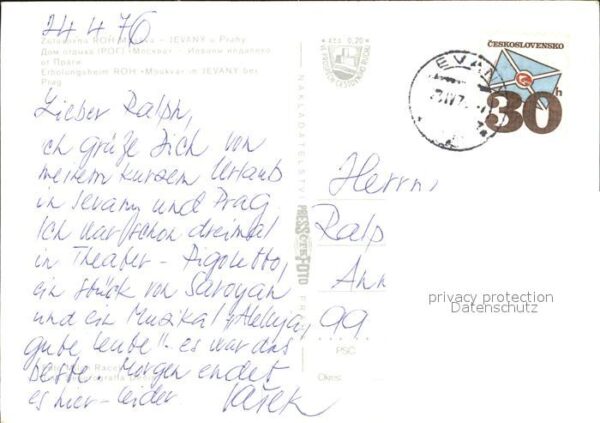 24.4.76
Zotavovna ROH Moskva - JEVANY u Prahy
Дом отдыха (РОГ) «Москва» - Иеваны недалеко
от Праги
Erholungsheim ROH «Moskva» in JEVANY bei
Prag
Lieber Ralph,
ich grüße Dich von
meinem kurzem Urlaub
in Jevany und Prag.
Ich war schon dreimal
in Theater - Rigoletto,
ein Stück von Saroyan
und ein Musikal "Alleluja,
gute Leute" - es war das
beste. Morgen endet
es hier - leider. Vašek
NAKLADATELSTVÍ
PRESSFOTO
Kčs 0,20
ČESKOSLOVENSKO
30h
JEVANY
Herrn
Ralp
Ann
99
PSČ
Okres
privacy protection
Datenschutz